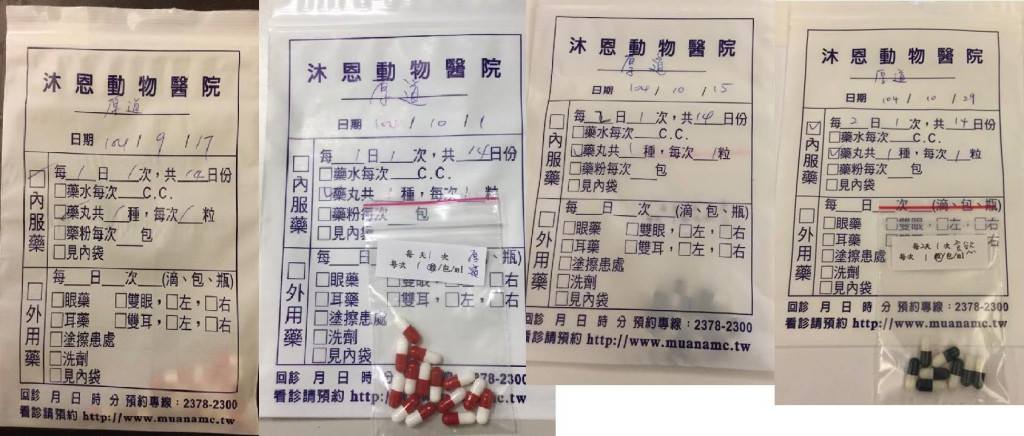 沐恩動物醫院
厚道
日期 104 / 9 / 17
內服藥
每 1 日 1 次，共 14 日份
藥水每次 C.C.
藥丸共 1 種，每次 1 粒
藥粉每次 包
見內袋
外用藥
每 日 次 (滴、包、瓶)
眼藥 雙眼，左，右
耳藥 雙耳，左，右
塗擦患處
洗劑
見內袋
回診 月 日 時 分 預約專線：2378-2300
看診請預約 http://www.muanamc.tw
沐恩動物醫院
厚道
日期 104 / 10 / 1
內服藥
每 1 日 1 次，共 14 日份
藥水每次 C.C.
藥丸共 1 種，每次 1 粒
藥粉每次 包
見內
外用藥
每 日
每 天 1 次
每次 1 粒/包/ml
厚道
眼藥
耳藥
塗擦患處
洗劑
見內袋
回診 月 日 時 分 預約專線：2378-2300
看診請預約 http://www.muanamc.tw
沐恩動物醫院
厚道
日期 104 / 10 / 15
內服藥
每 2 日 1 次，共 14 日份
藥水每次 C.C.
藥丸共 1 種，每次 1 粒
藥粉每次 包
見內袋
外用藥
每 日 次 (滴、包、瓶)
眼藥 雙眼，左，右
耳藥 雙耳，左，右
塗擦患處
洗劑
見內袋
回診 月 日 時 分 預約專線：2378-2300
看診請預約 http://www.muanamc.tw
沐恩動物醫院
厚道
日期 104 / 10 / 29
內服藥
每 2 日 1 次，共 14 日份
藥水每次 C.C.
藥丸共 1 種，每次 1 粒
藥粉每次 包
見內袋
外用藥
每 日 次 (滴、包、瓶)
眼藥 雙眼，左，右
耳藥
塗擦患處
洗劑
見內袋
每2天 1 次
每次 1 粒/包/ml
回診 月 日 時 分 預約專線：2378-2300
看診請預約 http://www.muanamc.tw